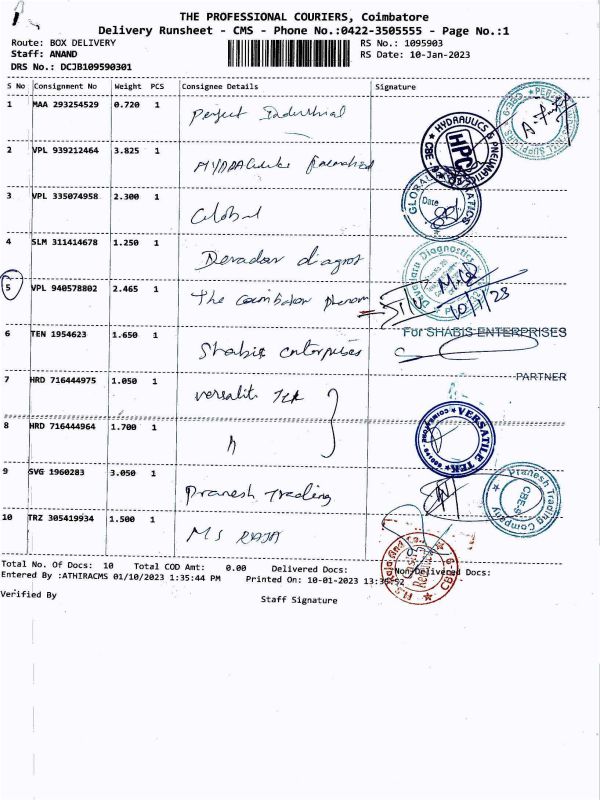 THE PROFESSIONAL COURIERS, Coimbatore
Delivery Runsheet - CMS - Phone No.:0422-3505555 - Page No.:1
Route: BOX DELIVERY RS No.: 1095903
Staff: ANAND RS Date: 10-Jan-2023
DRS No.: DCJB109590301
S No Consignment No Weight PCS Consignee Details Signature
1 MAA 293254529 0.720 1 Perfect Industrial
2 VPL 939212464 3.825 1
HYDRAULICS & PNEUMATICS
HPC
CBE-
3 VPL 335074958 2.300 1 Global
GLOBAL
Date
4 SLM 311414678 1.250 1 Devadar diagnos
Devadaru Diagnostics
5 VPL 940578802 2.465 1 The Coimbatore
10/1/23
6 TEN 1954623 1.650 1 Shabis enterprises
For SHABIS ENTERPRISES
PARTNER
7 HRD 716444975 1.050 1 versalite Tek
8 HRD 716444964 1.700 1
VERSATILE TEK
COIMBATORE
9 SVG 1960283 3.050 1 Pranesh Trading
Pranesh Trading Company
CBE-
10 TRZ 305419934 1.500 1 MS RAJA
Total No. Of Docs: 10 Total COD Amt: 0.00 Delivered Docs: Non-Delivered Docs:
Entered By :ATHIRACMS 01/10/2023 1:35:44 PM Printed On: 10-01-2023 13:35:52
Verified By Staff Signature